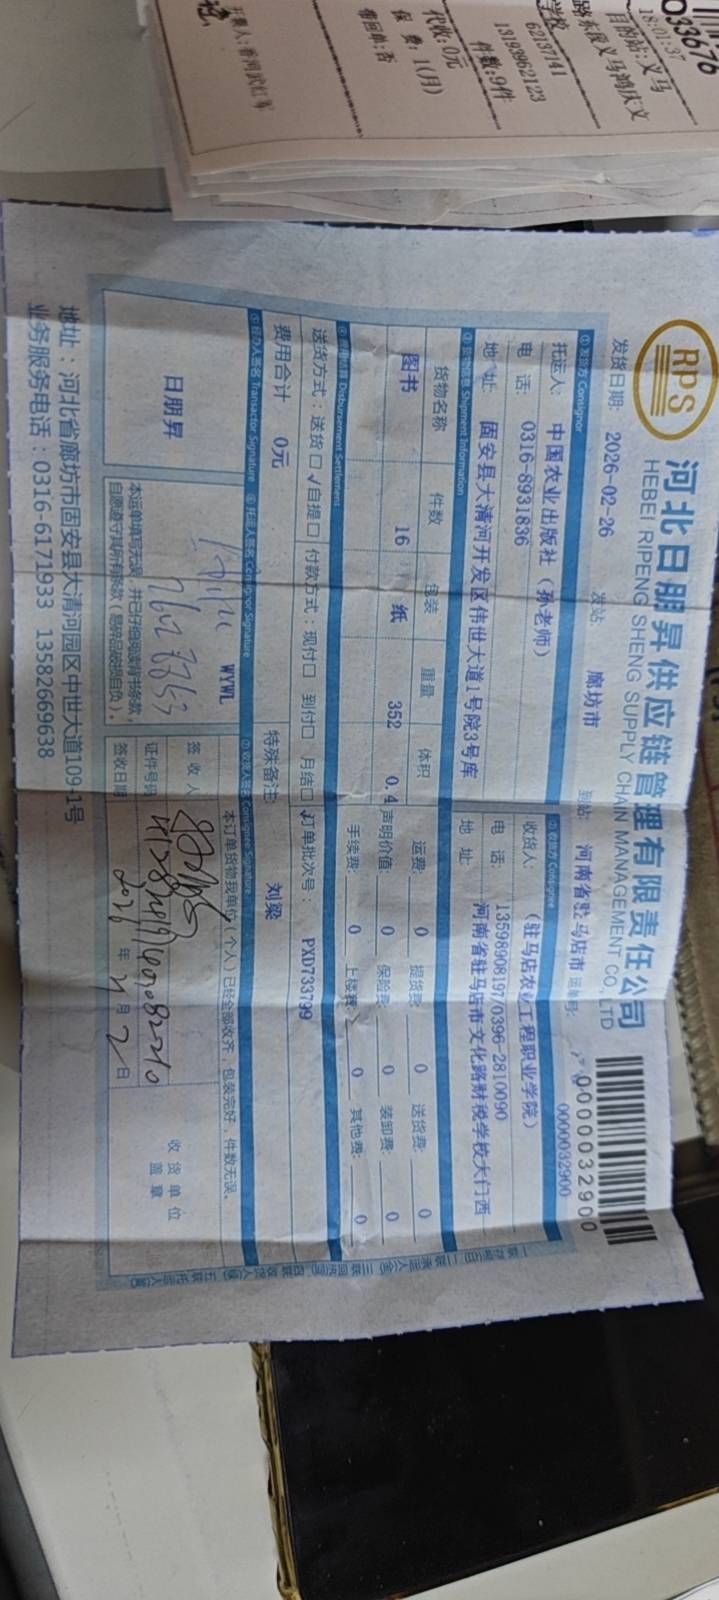 033676
18:01:37
目的站:义马
62137141
13193962123
件数:9件
代收:0元
保 费: 1(月)
带回单:否
RPS
河北日朋昇供应链管理有限责任公司
HEBEI RIPENG SHENG SUPPLY CHAIN MANAGEMENT CO.,LTD
0000032900
发货日期: 2026-02-26 发站: 廊坊市 到站: 河南省驻马店市 运单号: 0000032900
①发货方 Consignor
托运人: 中国农业出版社(孙老师)
电 话: 0316-8931836
地 址: 固安县大清河开发区伟世大道1号院3号库
②收货方 Consignee
收货人: (驻马店农业工程职业学院)
电 话: 13598908197/0396-2810090
地 址: 河南省驻马店市文化路财税学校大门西
③货物信息 Shipment Information
货物名称 件数 包装 重量 体积
图书 16 纸 352 0.4
运费: 0 提货费: 0 送货费: 0
声明价值: 0 保险费: 0 装卸费: 0
手续费: 0 上楼费: 0 其他费: 0
④费用结算 Disbursement Settlement
送货方式:送货□ √自提□ 付款方式:现付□ 到付□ 月结□ 订单批次号: PXD733799
费用合计 0元 特殊备注: 刘梁
⑤经办人签名 Transactor Signature ⑥托运人签名 Consignor Signature ⑦收货人签名 Consignee Signature
日朋昇
WYWL
本运单填写无误,并已仔细阅读背书条款,
自愿遵守其所有条款(易碎品破损自负)。
本订单货物我单位(个人)已经全部收齐,包装完好,件数无误。
签 收 人
证件号码
签收日期 2026 年 4 月 2 日
收货单位
盖 章
地址:河北省廊坊市固安县大清河园区中世大道109-1号
业务服务电话:0316-6171933 13582669638